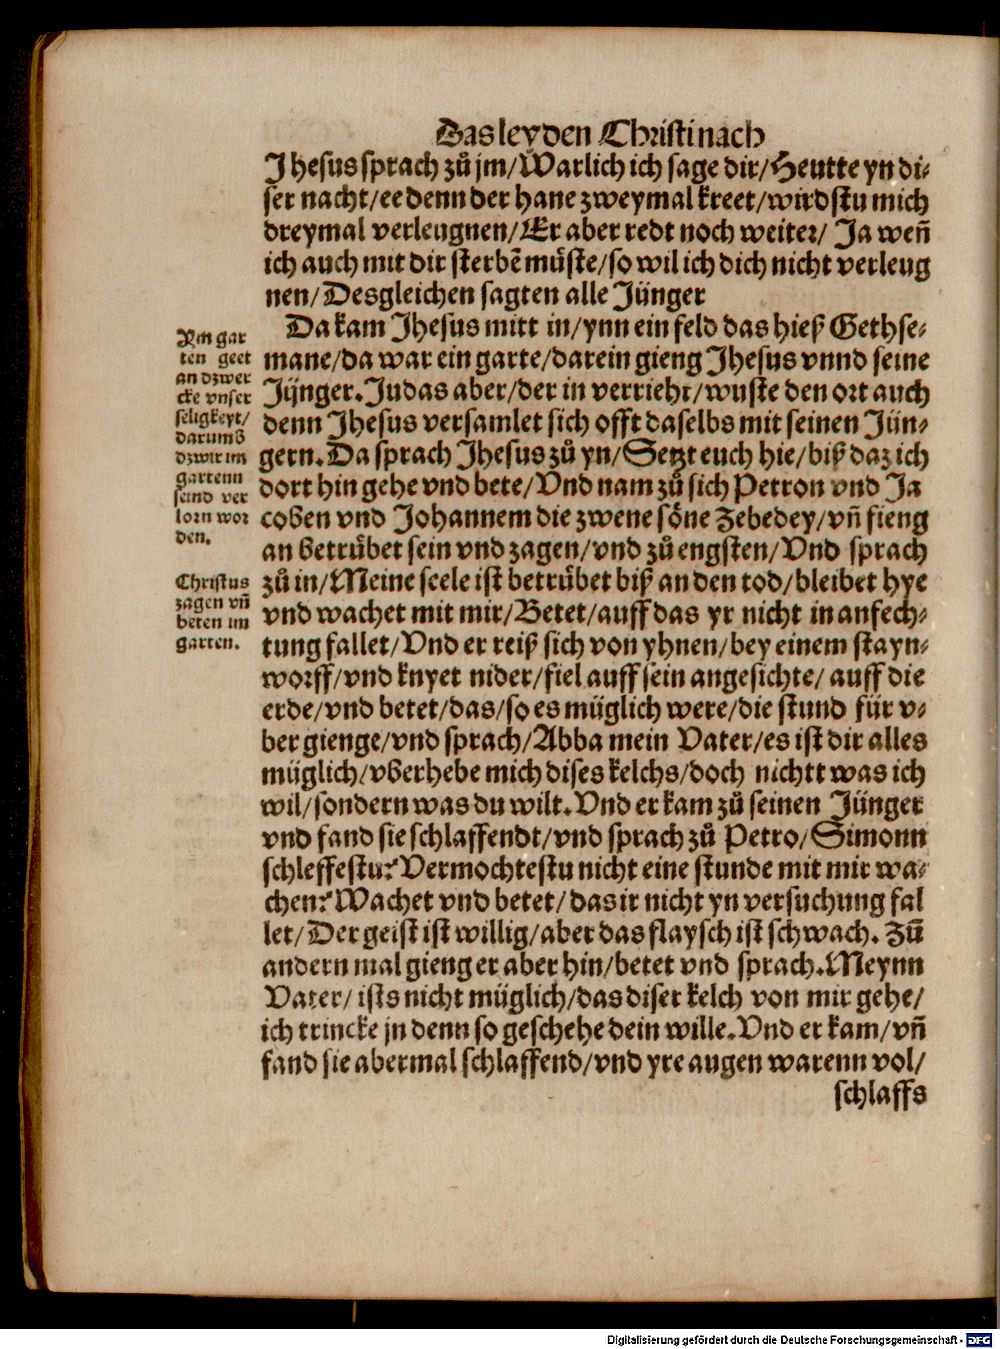 Das leyden Christi nach
Jhesus sprach zů jm/Warlich ich sage dir/Heutte yn di⸗
ser nacht/ee denn der hane zweymal kreet/wirdstu mich
dreymal verleugnen/Er aber redt noch weiter/ Ja weñ
ich auch mit dir sterbẽ můste/so wil ich dich nicht verleug
nen/Desgleichen sagten alle Jünger
Da kam Jhesus mitt in/ynn ein feld das hieß Gethse⸗
mane/da war ein garte/darein gieng Jhesus vnnd seine
Jünger.Judas aber/der in verrieht/wuste den ort auch
denn Jhesus versamlet sich offt daselbs mit seinen Jün⸗
gern.Da sprach Jhesus zů yn/Setzt euch hie/biß daz ich
dort hin gehe vnd bete/Vnd nam zů sich Petron vnd Ja
coben vnd Johannem die zwene söne Zebedey/vñ fieng
an betrůbet sein vnd zagen/vnd zů engsten/Vnd sprach
zů in/Meine seele ist betrůbet biß an den tod/bleibet hye
vnd wachet mit mir/Betet/auff das yr nicht in anfech⸗
tung fallet/Vnd er reiß sich von yhnen/bey einem stayn⸗
worff/vnd knyet nider/fiel auff sein angesichte/ auff die
erde/vnd betet/das/so es müglich were/die stund für v⸗
ber gienge/vnd sprach/Abba mein Vater/es ist dir alles
müglich/vberhebe mich dises kelchs/doch nichtt was ich
wil/sondern was du wilt.Vnd er kam zů seinen Jünger
vnd fand sie schlaffendt/vnd sprach zů Petro/Simonn
schleffestu?Vermochtestu nicht eine stunde mit mir wa⸗
chen?Wachet vnd betet/das ir nicht yn versuchung fal
let/Der geist ist willig/aber das flaysch ist schwach. Zů̃
andern mal gieng er aber hin/betet vnd sprach.Meynn
Vater/ ists nicht müglich/das diser kelch von mir gehe/
ich trincke jn denn so geschehe dein wille.Vnd er kam/vñ
fand sie abermal schlaffend/vnd yre augen warenn vol/
schlaffs
Ym gar
ten geet
an dzwer
cke vnser
seligkeyt/
darumb
dzwir im
gartenn
seind ver
lorn wor
den.
Christus
zagen vñ
beten im
garten.
Digitalisierung gefördert durch die Deutsche Forschungsgemeinschaft - DFG